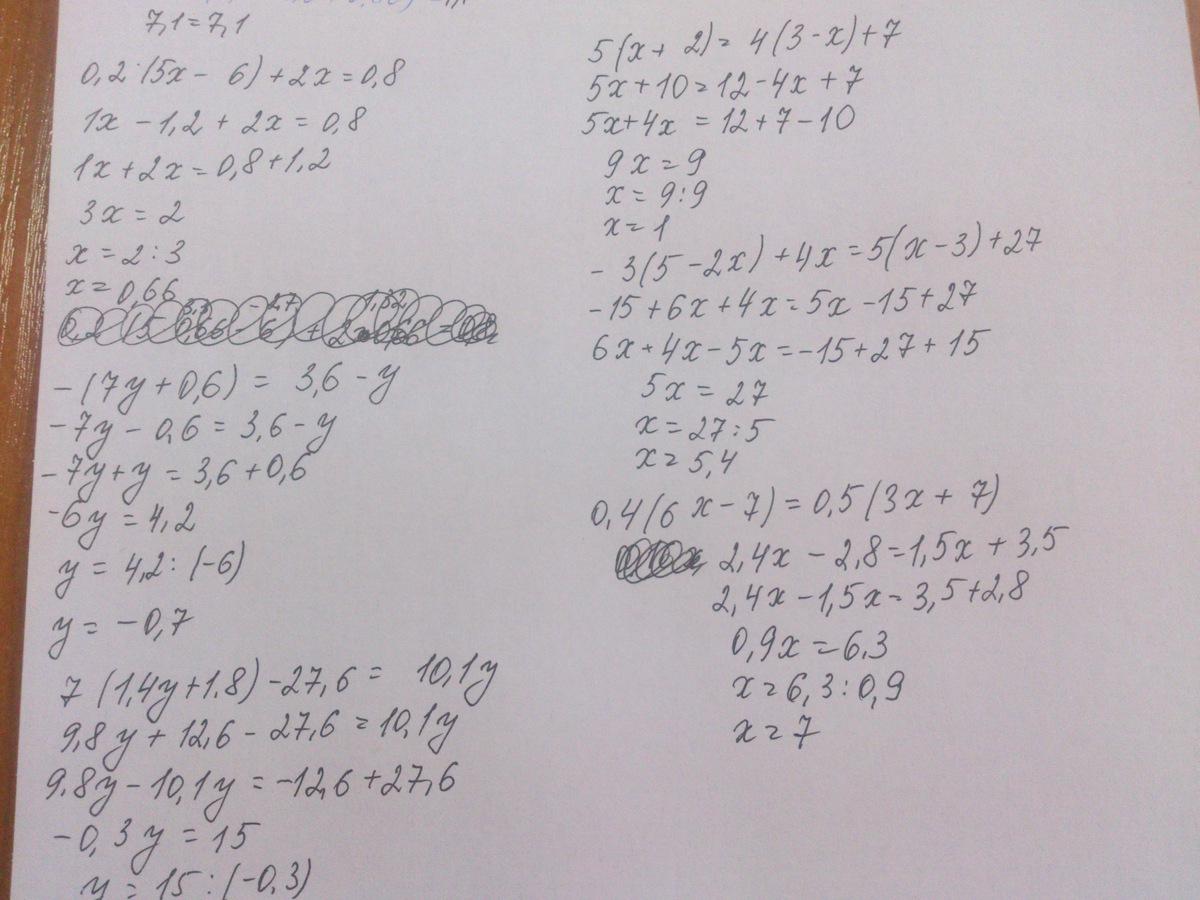 7,1=7,1
0,2·(5x- 6)+2x=0,8
1x-1,2+2x=0,8
1x+2x=0,8+1,2
3x=2
x=2:3
x=0,66
-(7y+0,6)= 3,6-y
-7y-0,6=3,6-y
-7y+y=3,6+0,6
-6y=4,2
y=4,2:(-6)
y=-0,7
7(1,4y+1.8)-27,6= 10,1y
9,8y+12,6-27,6=10,1y
9.8y-10,1y=-12,6+27,6
-0,3y=15
y=15:(-0,3)
5(x+ 2)= 4(3-x)+7
5x+10=12-4x+7
5x+4x=12+7-10
9x=9
x=9:9
x=1
-3(5-2x)+4x=5(x-3)+27
-15+6x+4x=5x-15+27
6x+4x-5x=-15+27+15
5x=27
x=27:5
x=5,4
0,4(6x-7)=0,5(3x+7)
2,4x-2,8=1,5x+3,5
2,4x-1,5x=3,5+2,8
0,9x=6.3
x=6,3:0,9
x=7